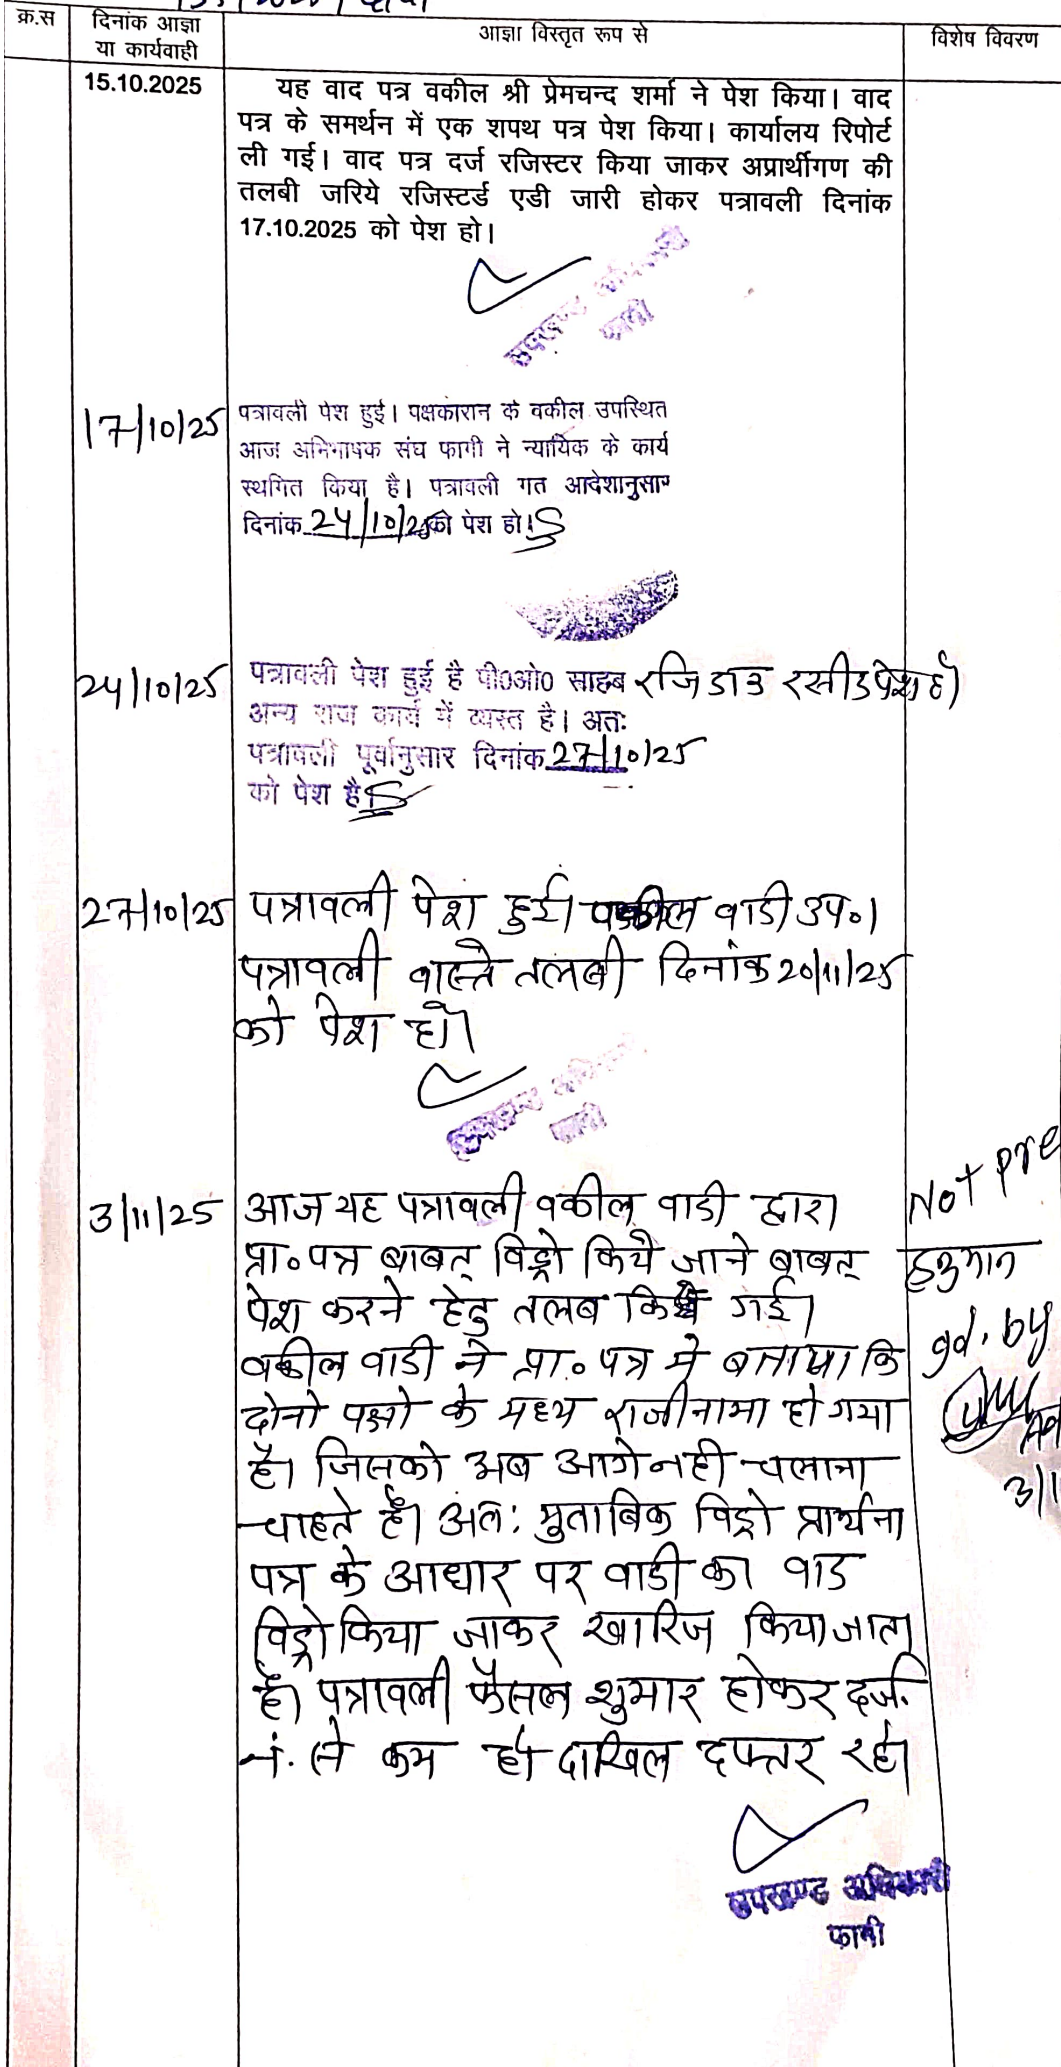 क्र.स
दिनांक आज्ञा
या कार्यवाही
आज्ञा विस्तृत रूप से
विशेष विवरण
15.10.2025
यह वाद पत्र वकील श्री प्रेमचन्द शर्मा ने पेश किया। वाद
पत्र के समर्थन में एक शपथ पत्र पेश किया। कार्यालय रिपोर्ट
ली गई। वाद पत्र दर्ज रजिस्टर किया जाकर अप्रार्थीगण की
तलबी जरिये रजिस्टर्ड एडी जारी होकर पत्रावली दिनांक
17.10.2025 को पेश हो।
उपखण्ड
फागी
17/10/25
पत्रावली पेश हुई। पक्षकारान के वकील उपस्थित
आज अभिभाषक संघ फागी ने न्यायिक के कार्य
स्थगित किया है। पत्रावली गत आदेशानुसार
दिनांक 24/10/25 को पेश हो।
24/10/25
पत्रावली पेश हुई है पी0ओ0 साहब रजि डाउ रसीद पेश है।
अन्य राज कार्य में व्यस्त है। अतः
पत्रावली पूर्वानुसार दिनांक 27/10/25
को पेश है।
27/10/25
पत्रावली पेश हुई। वकील वादी उप०।
पत्रावली वास्ते तलबी दिनांक 20/11/25
को पेश हो।
फागी
3/11/25
आज यह पत्रावली वकील वादी द्वारा
प्रा० पत्र बाबत् विड्रो किये जाने बाबत्
पेश करने हेतु तलब किये गई।
वकील वादी ने प्रा० पत्र मे बताया कि
दोनो पक्षो के मध्य राजीनामा हो गया
है। जिसको अब आगे नही चलाना
चाहते है। अतः मुताबिक विड्रो प्रार्थना
पत्र के आधार पर वादी का वाद
विड्रो किया जाकर खारिज किया जाता
है। पत्रावली फैसल शुमार होकर दर्ज
नं. से कम हो दाखिल दफ्तर रहे।
Not pre
हनुमान
gd. by
3/1
उपखण्ड अधिकारी
फागी